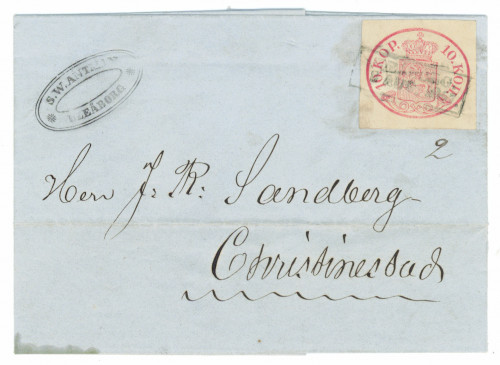 S.W.
ULEÅBORG
10.KOP. 10.KOP.
2
Herr J. R: Sandberg
Christinestad